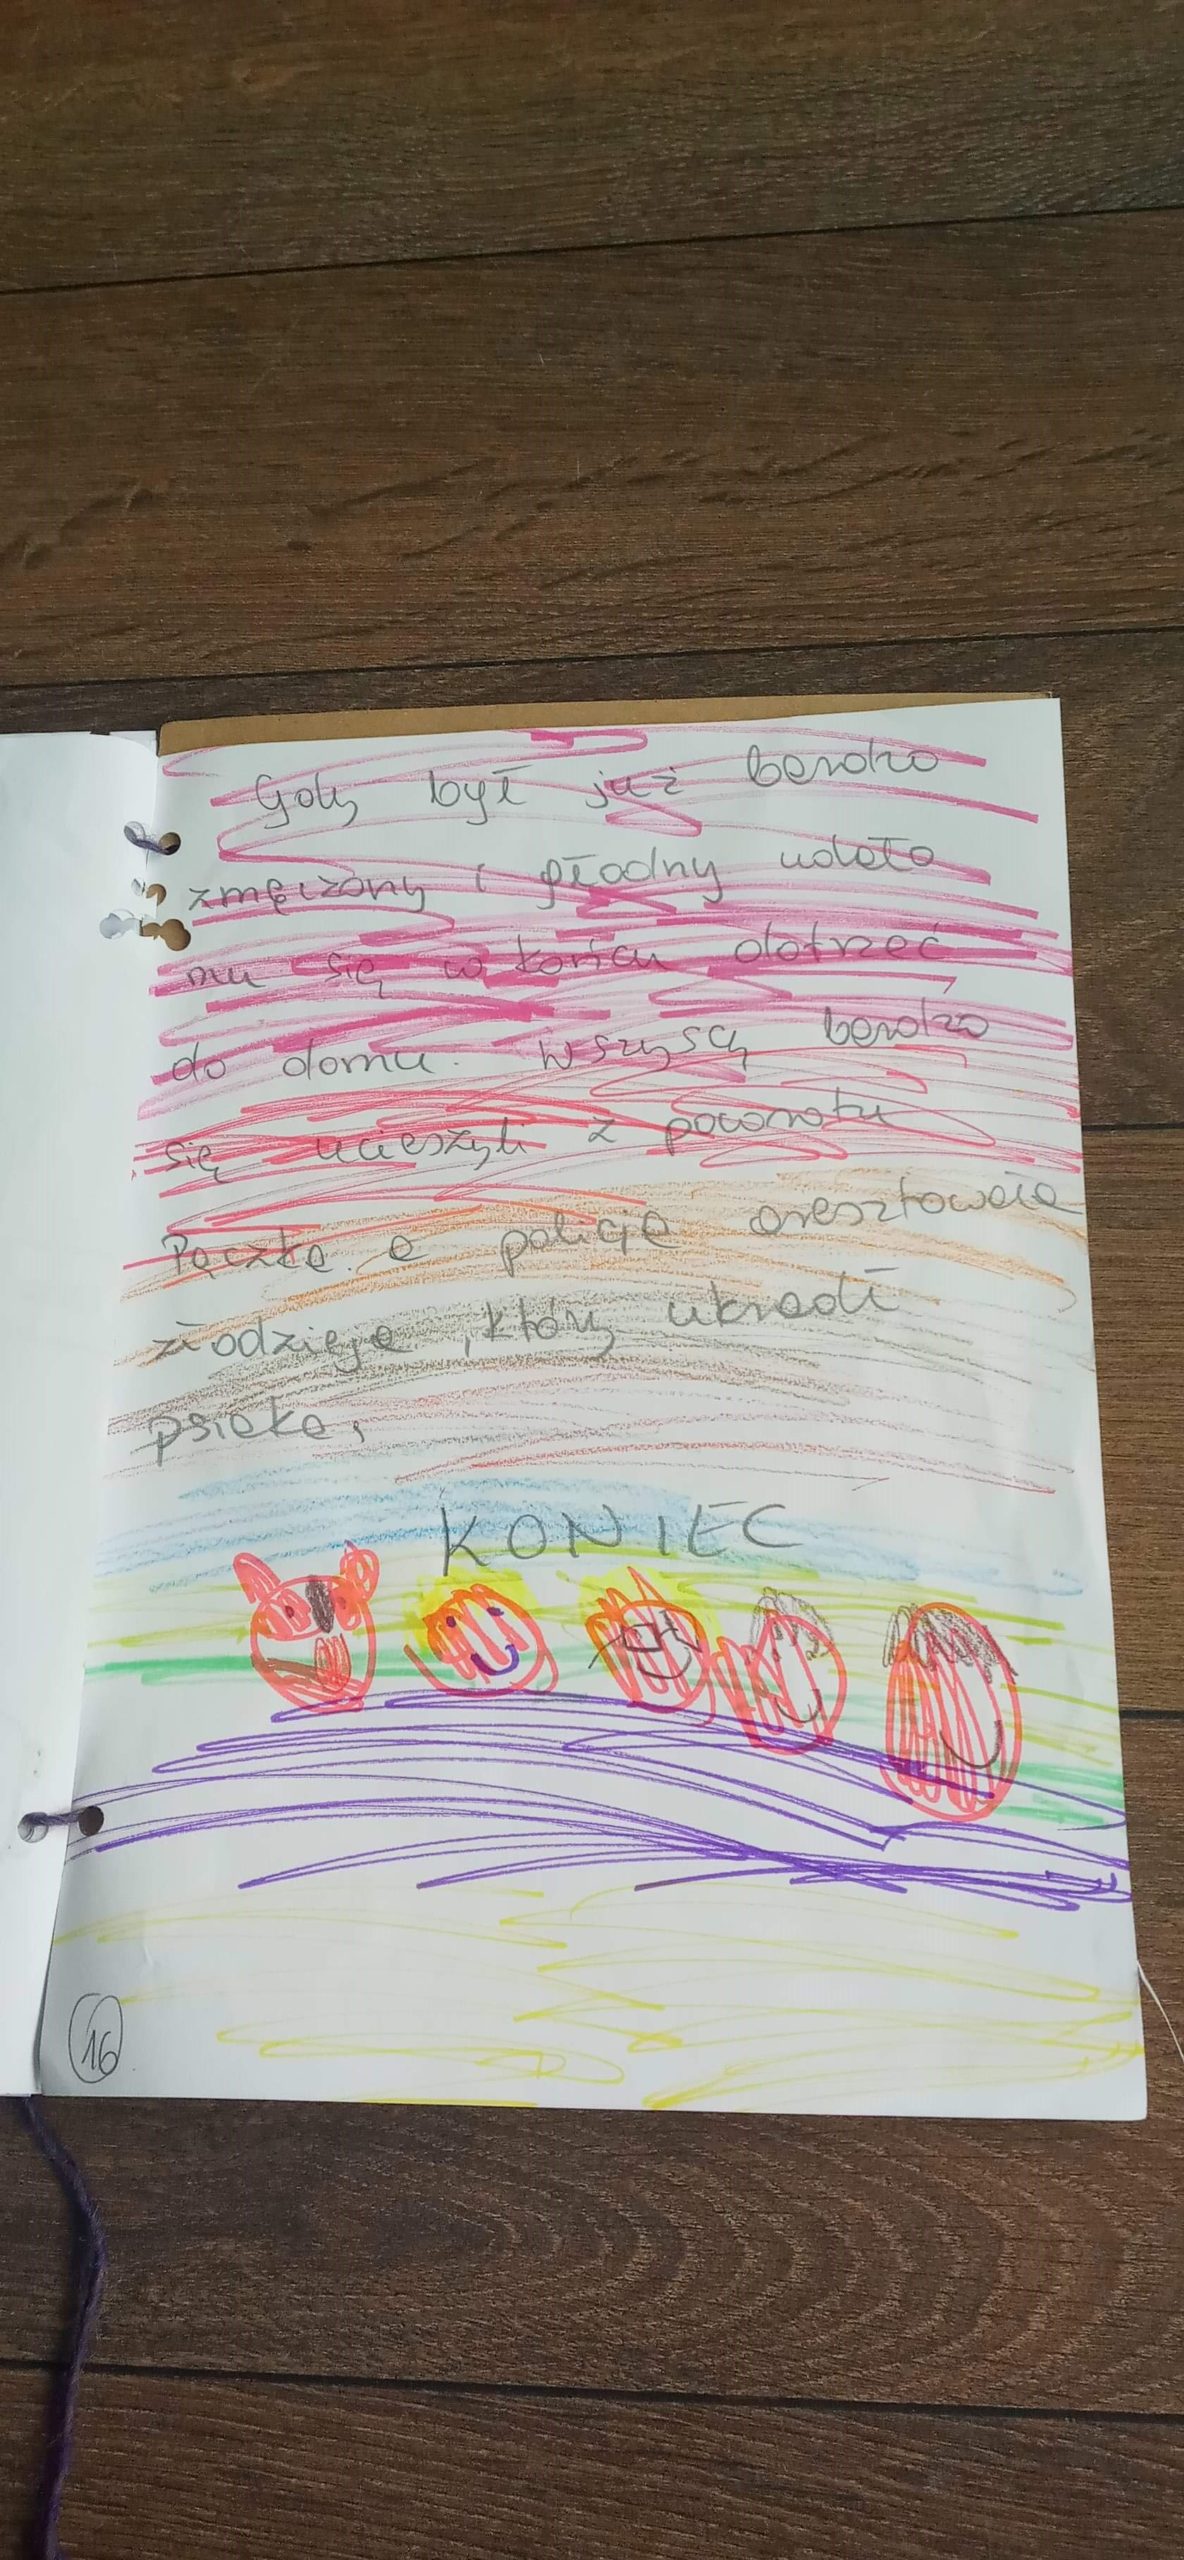 Gdy był już bardzo
zmęczony i głodny udało
mu się w końcu dotrzeć
do domu. Wszyscy bardzo
się ucieszyli z powrotu
Pączka a policja aresztowała
złodzieja, który ukradł
psiaka,
KONIEC
16